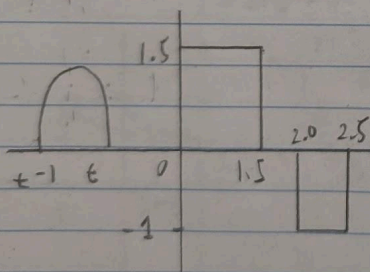 1.5
2.0 2.5
t-1 t 0 1.5
-1